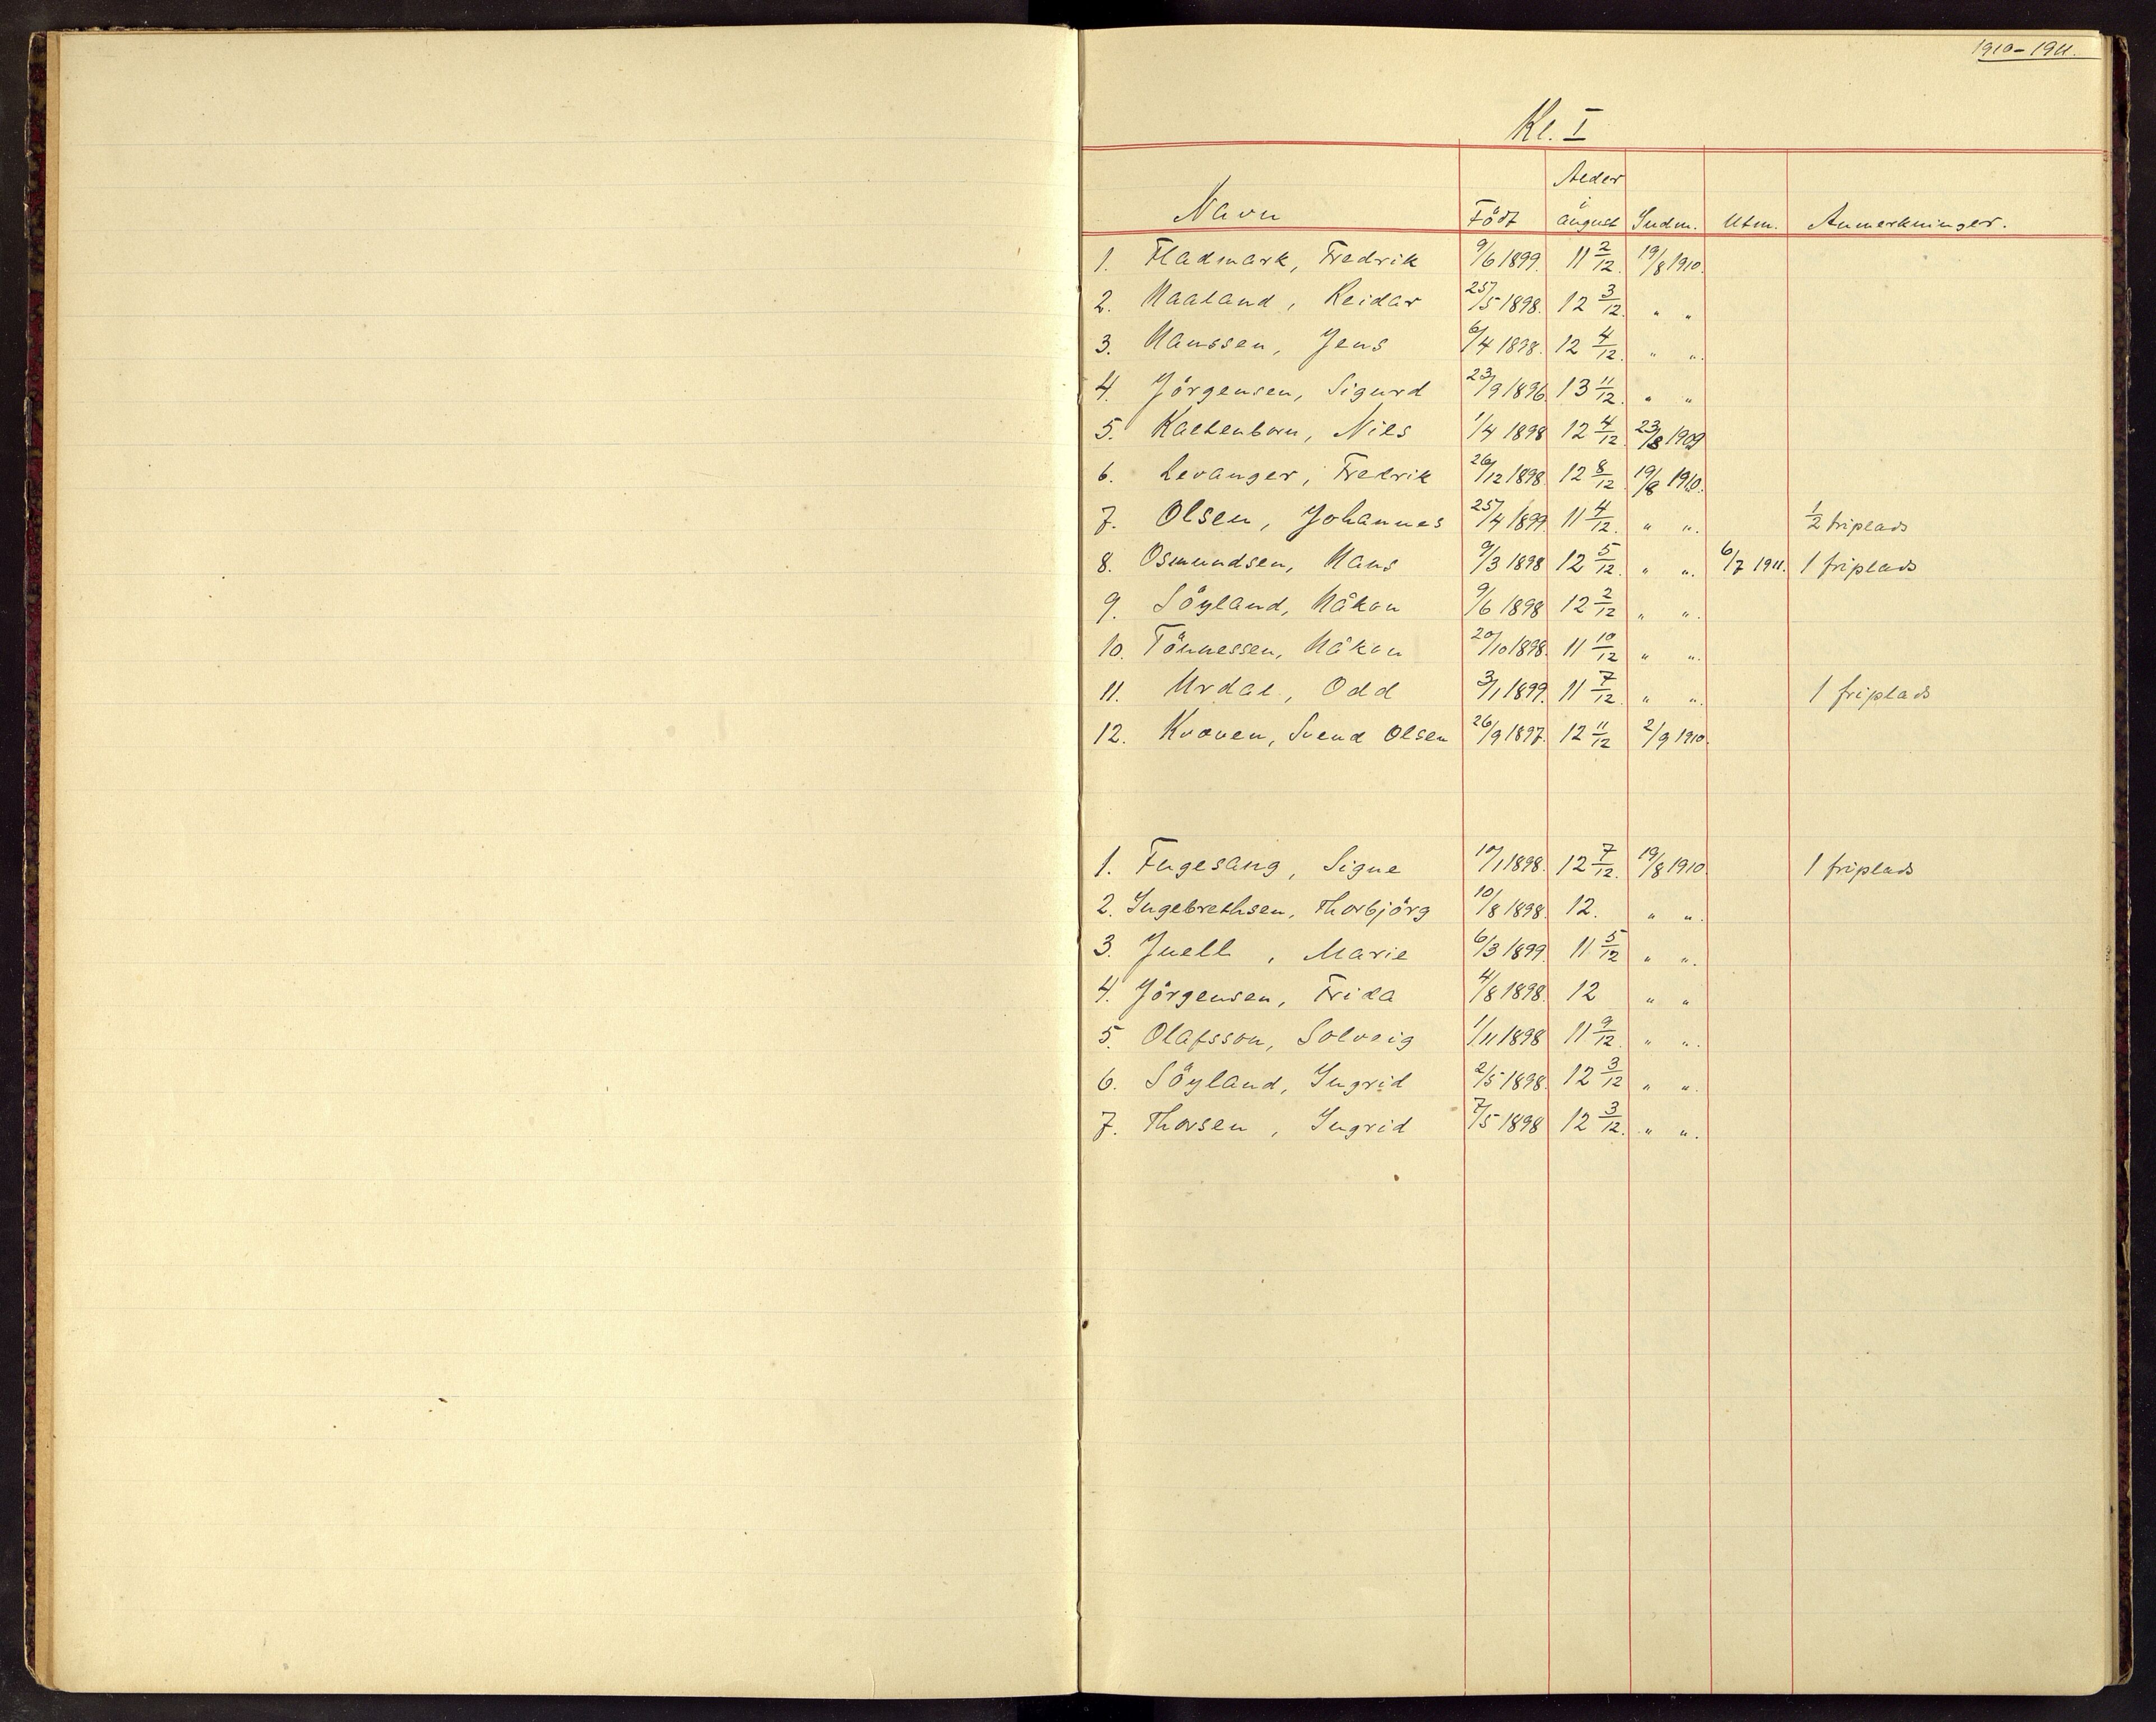 1910-1911.
Kl. I
Navn Födt Alder i august Indm. Utm. Anmerkninger.
1. Fladmark, Fredrik 9/6 1899. 11 2/12. 19/8 1910.
2. Haaland, Reidar 25/5 1898. 12 3/12. " "
3. Hanssen, Jens 6/4 1898. 12 4/12. " ".
4. Jörgensen, Sigurd 23/9 1896. 13 11/12. " "
5. Kaltenborn, Nils 1/4 1898 12 4/12. 23/8 1909
6. Levanger, Fredrik 26/12 1898. 12 8/12. 19/8 1910.
7. Olsen, Johannes 25/4 1899. 11 4/12. " ". 1/2 friplads
8. Osmundsen, Hans 9/3 1898 12 5/12. " ". 6/7 1911. 1 friplads
9. Söyland, Håkon 9/6 1898 12 2/12 " ".
10. Tönnessen, Håkon 20/10 1898. 11 10/12 " ".
11. Urdal, Odd 3/1 1899. 11 7/12. " ". 1 friplads
12. Kvaven, Svend Olsen 26/9 1897. 12 11/12 2/9 1910.
1. Fuglesang, Signe 10/1 1898. 12 7/12. 19/8 1910. 1 friplads
2. Ingebrethsen, Thorbjörg 10/8 1898. 12. " ".
3. Juell, Marie 6/3 1899. 11 5/12 " ".
4. Jörgensen, Frida 4/8 1898. 12 " "
5. Olafsson, Solveig 1/11 1898 11 9/12. " ".
6. Söyland, Ingrid 2/5 1898. 12 3/12 " ".
7. Thorsen, Ingrid 7/5 1898 12 3/12. " ".